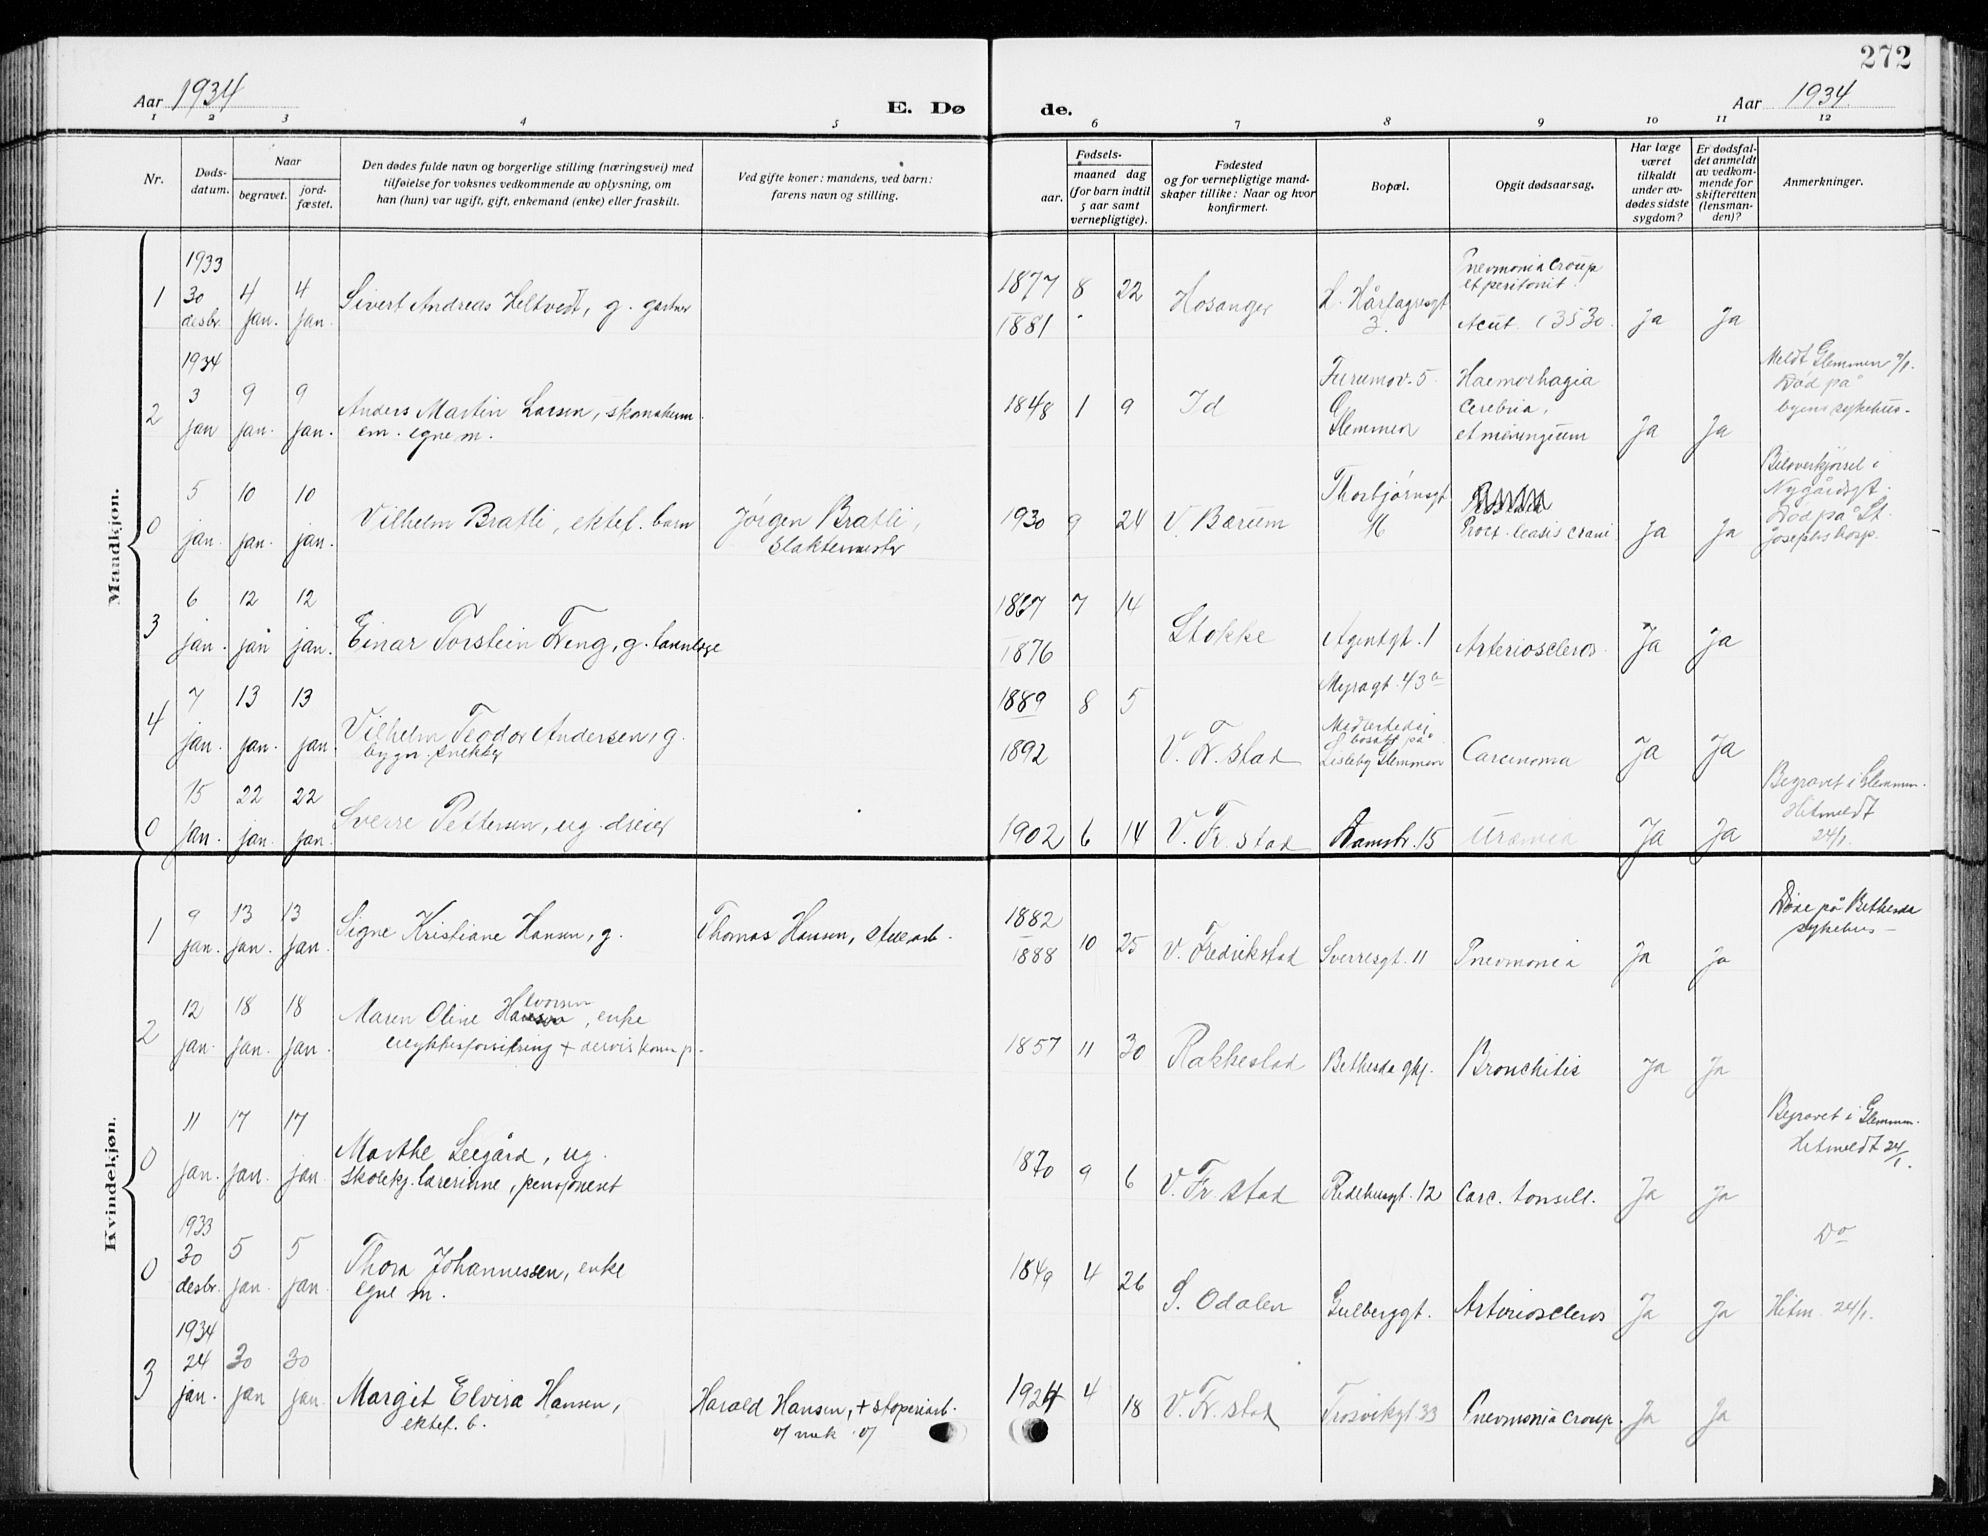 272
Aar 1934
E. Dø de.
Aar 1934
1 2 3 4 5 6 7 8 9 10 11 12
Nr.
Døds-
datum.
Naar
begravet.
jord-
fæstet.
Den dødes fulde navn og borgerlige stilling (næringsvei) med
tilføielse for voksnes vedkommende av oplysning, om
han (hun) var ugift, gift, enkemand (enke) eller fraskilt.
Ved gifte koner: mandens, ved barn:
farens navn og stilling.
Fødsels-
aar.
maaned dag
(for barn indtil
5 aar samt
vernepligtige).
Fødested
og for vernepligtige mand-
skaper tillike: Naar og hvor
konfirmert.
Bopæl.
Opgit dødsaarsag.
Har læge
været
tilkaldt
under av-
dødes sidste
sygdom?
Er dødsfal-
det anmeldt
av vedkom-
mende for
skifteretten
(lensman-
den)?
Anmerkninger.
Mandkjøn.
1
1933
30 desbr.
4 jan.
4 jan.
Sivert Andreas Heltvedt, g. gartner
1877
1881
8 22
Hosanger
H. Hårfagresgt
3.
Pnevmonia Croup
et peritonit.
Acut. 13530.
Ja Ja
2
1934
3 jan
9 jan.
9 jan.
Anders Martin Larsen, skomakerm.
em. egne m.
1848 1 9
Id
Furumov. 5
Glemmen
Haemorhagia
Cerebria,
et meningium
Ja Ja
Meldt Glemmen 9/1.
Død på
byens sykehus.
0
5 jan.
10 jan.
10 jan.
Vilhelm Bratli, ektef. barn
Jørgen Bratli,
slaktermester
1930 9 24
V. Bærum
Thorbjørnsgt
Ja Ja
Biloverkjørsel i
Nygårdsgt.
Død på St.
Josephs hosp.
3
6 jan.
12 jan
12 jan.
Einar Torstein Feng, g. tannlæge
1867
1876
7 14
Stokke
Agentgt. 1
Arterioscleros.
Ja Ja
4
7 jan.
13 jan.
13 jan.
Vilhelm Teodor Andersen, g.
bygn. snekker
1889
1892
8 5
V. Fr. stad
Myragt. 43a
Midlertidig
bosatt på
Lisleby Glemmen
Carcinoma
Ja Ja
0
15 jan.
22 jan.
22 jan.
Sverre Pettersen, ug. dreier
1902 6 14
V. Fr. stad
Damsbr. 15
Uræmia
Ja Ja
Begravet i Glemmen.
Hitmeldt
24/1.
Kvindekjøn.
1
9 jan.
13 jan.
13 jan.
Signe Kristiane Hansen, g.
Thomas Hansen,
1882
1888
10 25
V. Fredrikstad
Sverresgt. 11
Pnevmonia
Ja Ja
Døde på Bethesda
sykehus
2
12 jan.
18 jan.
18 jan.
Maren Oline Halvorsen, enke
ulykkesforsikring +
1857 11 30
Rakkestad
Bethesda ghj.
Bronchitis
Ja Ja
0
11 jan.
17 jan.
17 jan.
Marthe Leegård, ug.
skolekj. lærerinne, pensjonert
1870 9 6
V. Fr. stad
Ridehusgt. 12
Carc. tonsill.
Ja Ja
Begravet i Glemmen.
Hitmeldt 24/1.
0
1933
30 desbr.
5 jan.
5 jan.
Thora Johannessen, enke
egne m.
1849 4 26
S. Odalen
Gulberggt.
Arterioscleros
Ja Ja
Do
Hitm. 24/1.
3
1934
24 jan.
30 jan
30 jan.
Margit Elvira Hansen,
ektef. b.
Harald Hansen, + støperiarb.
v/ mek v/
1924 4 18
V. Fr. stad
Trosvikgt. 33
Pnevmonia Croup.
Ja Ja